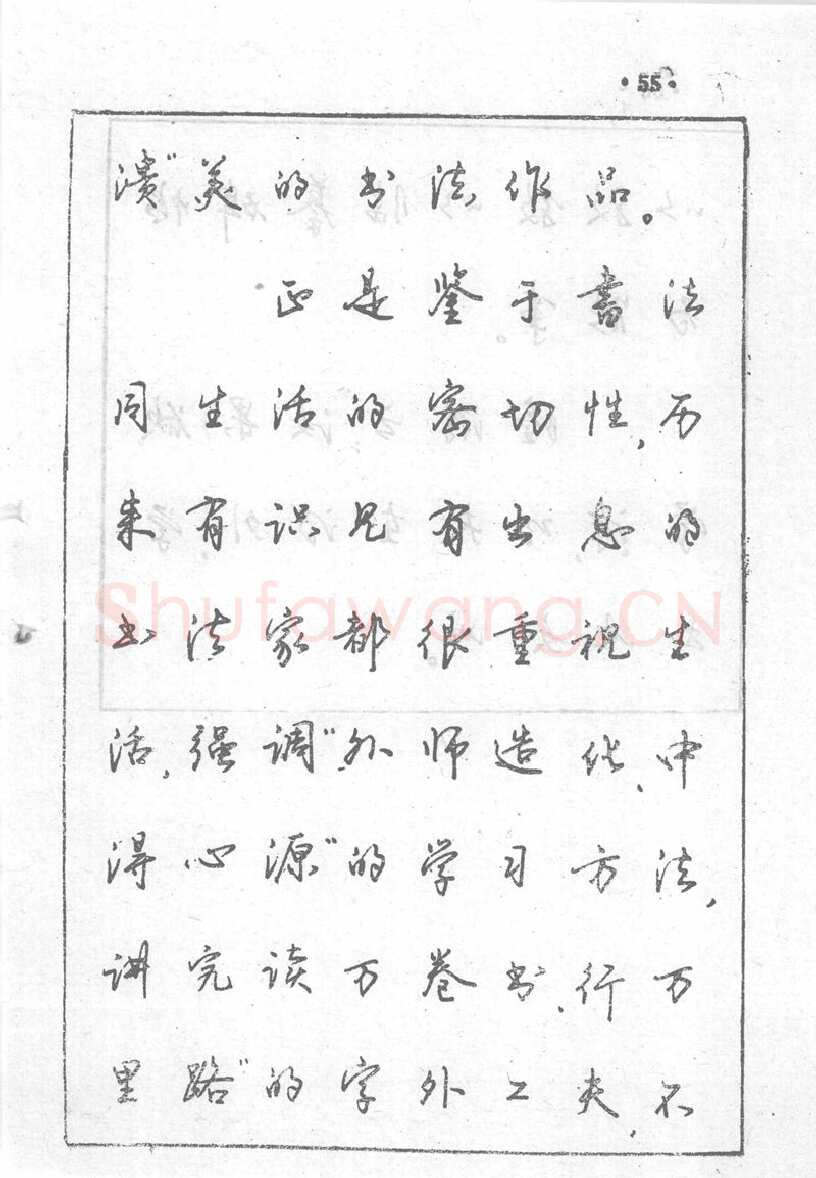 ·55·
渍”美的书法作品。
正是鉴于書法
同生活的密切性,历
来有识见有出息的
书法家都很重视生
活,强调“外师造化、中
得心源”的学习方法,
讲究读万卷书、行万
里路”的字外工夫,不
Shufawang.CN